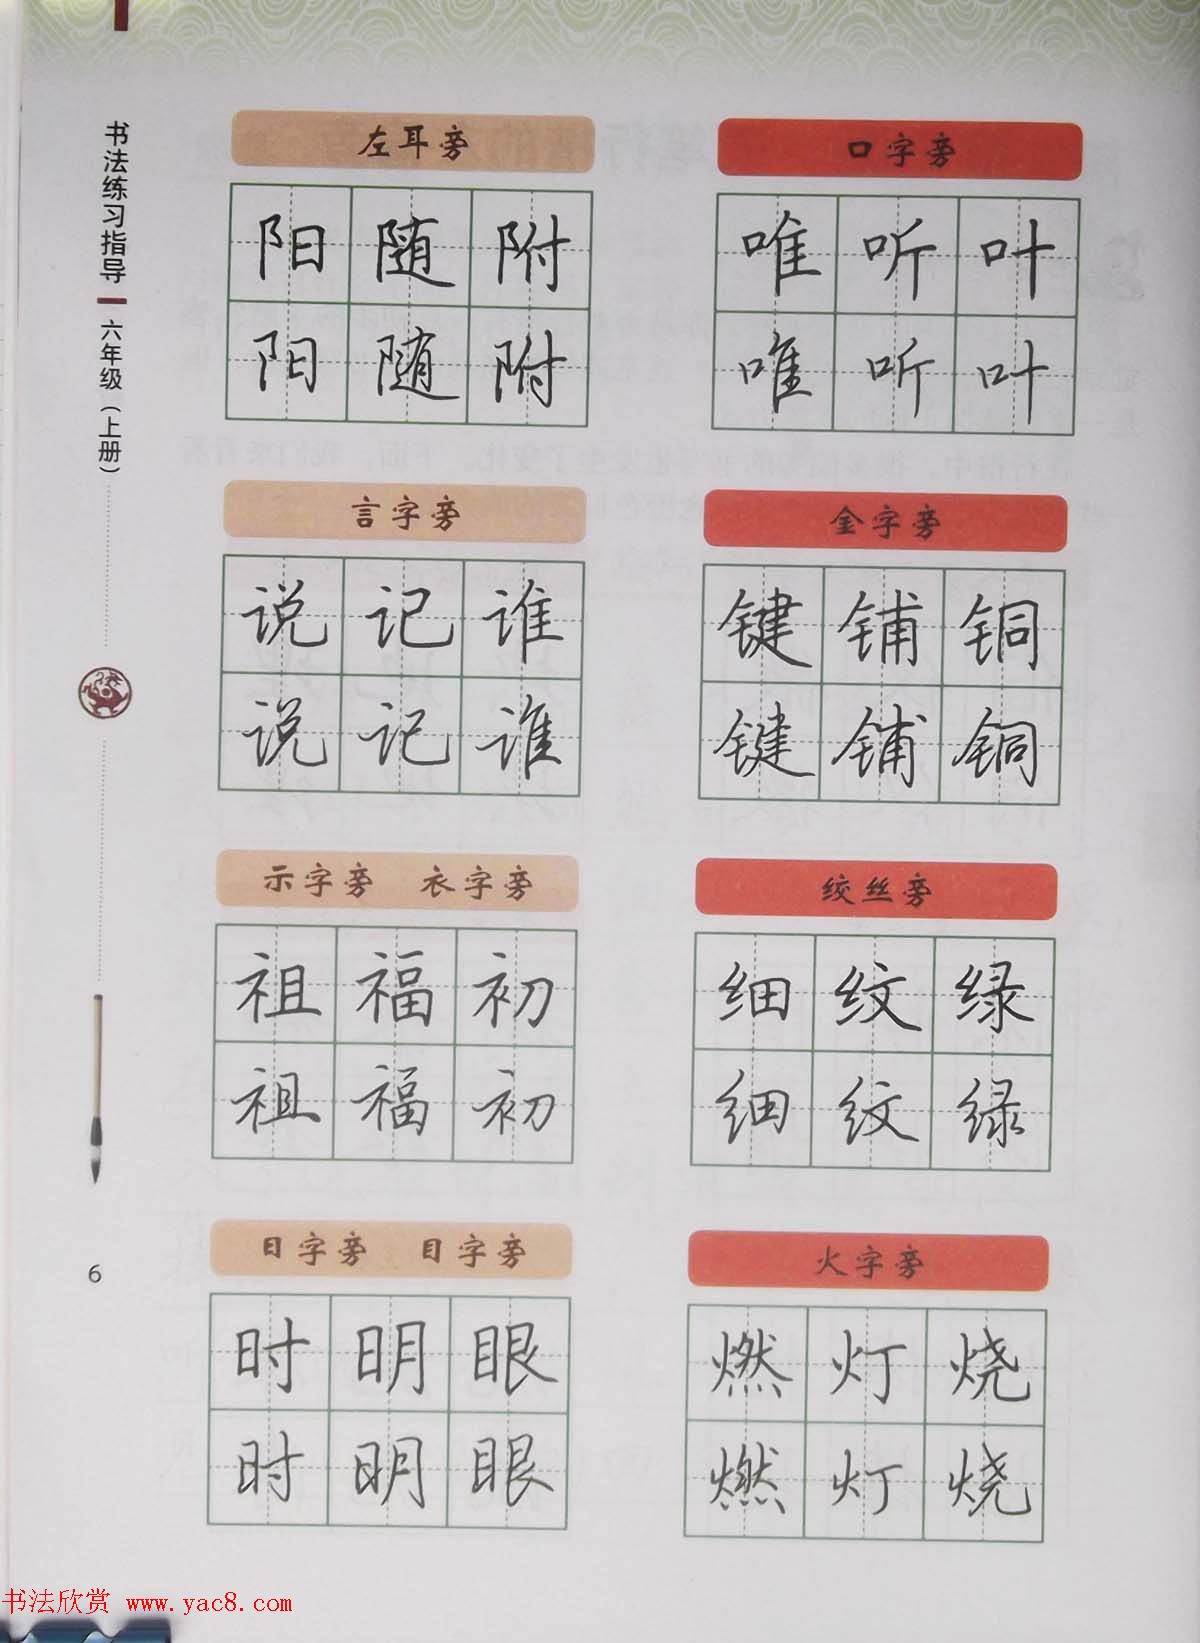 书法练习指导
六年级（上册）
左耳旁
阳随附
阳随附
口字旁
唯听叶
唯听叶
言字旁
说记谁
说记谁
金字旁
键铺铜
键铺铜
示字旁 衣字旁
祖福初
祖福初
绞丝旁
细纹绿
细纹绿
日字旁 目字旁
时明眼
时明眼
火字旁
燃灯烧
燃灯烧
6
书法欣赏 www.yac8.com